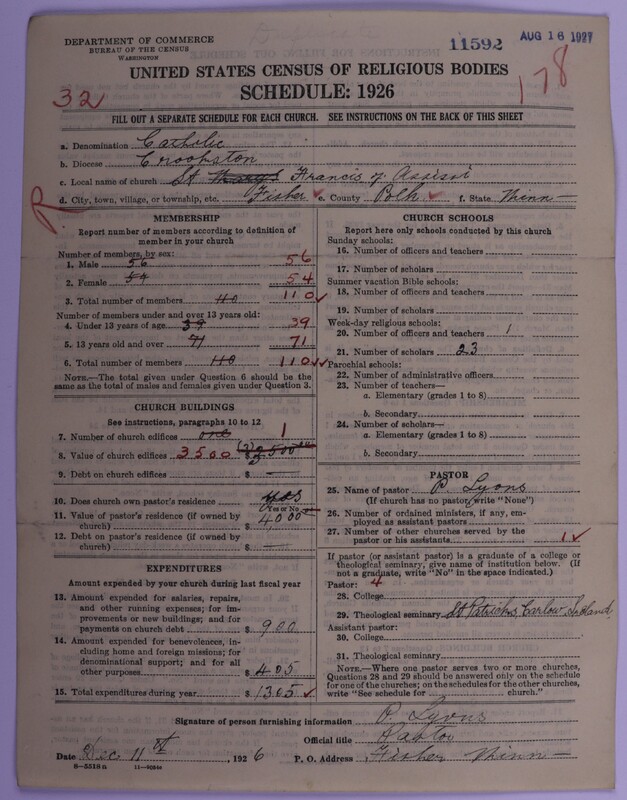 DEPARTMENT OF COMMERCE
BUREAU OF THE CENSUS
WASHINGTON
11592
AUG 16 1927
UNITED STATES CENSUS OF RELIGIOUS BODIES
SCHEDULE: 1926
32
178
FILL OUT A SEPARATE SCHEDULE FOR EACH CHURCH. SEE INSTRUCTIONS ON THE BACK OF THIS SHEET
a. Denomination Catholic
b. Diocese Crookston
c. Local name of church St Mary's Francis of Assissi
d. City, town, village, or township, etc. Fisher e. County Polk f. State Minn
R
MEMBERSHIP
Report number of members according to definition of
member in your church
Number of members, by sex:
1. Male 56 56
2. Female 54 54
3. Total number of members 110 110
Number of members under and over 13 years old:
4. Under 13 years of age 39 39
5. 13 years old and over 71 71
6. Total number of members 110 110
NOTE.—The total given under Question 6 should be the
same as the total of males and females given under Question 3.
CHURCH BUILDINGS
See instructions, paragraphs 10 to 12
7. Number of church edifices one 1
8. Value of church edifices 3500
9. Debt on church edifices $ —
10. Does church own pastor's residence yes
(Yes or No)
11. Value of pastor's residence (if owned by
church) $ 4000
12. Debt on pastor's residence (if owned by
church) $ —
EXPENDITURES
Amount expended by your church during last fiscal year
13. Amount expended for salaries, repairs,
and other running expenses; for im-
provements or new buildings; and for
payments on church debt $ 900
14. Amount expended for benevolences, in-
cluding home and foreign missions; for
denominational support; and for all
other purposes $ 405
15. Total expenditures during year $ 1305
CHURCH SCHOOLS
Report here only schools conducted by this church
Sunday schools:
16. Number of officers and teachers
17. Number of scholars
Summer vacation Bible schools:
18. Number of officers and teachers
19. Number of scholars
Week-day religious schools:
20. Number of officers and teachers 1
21. Number of scholars 23
Parochial schools:
22. Number of administrative officers
23. Number of teachers—
a. Elementary (grades 1 to 8)
b. Secondary
24. Number of scholars—
a. Elementary (grades 1 to 8)
b. Secondary
PASTOR
25. Name of pastor P. Lyons
(If church has no pastor, write "None")
26. Number of ordained ministers, if any, em-
ployed as assistant pastors
27. Number of other churches served by the
pastor or his assistants 1
If pastor (or assistant pastor) is a graduate of a college or
theological seminary, give name of institution below. (If
not a graduate, write "No" in the space indicated.)
Pastor: 4
28. College
29. Theological seminary St Patricks Carlow, Ireland
Assistant pastor:
30. College
31. Theological seminary
NOTE.—Where one pastor serves two or more churches,
Questions 28 and 29 should be answered only on the schedule
for one of the churches; on the schedules for the other churches,
write "See schedule for church."
Signature of person furnishing information P. Lyons
Official title Pastor
Date Dec 11th, 1926 P. O. Address Fisher Minn
8-5516a 11-9034a